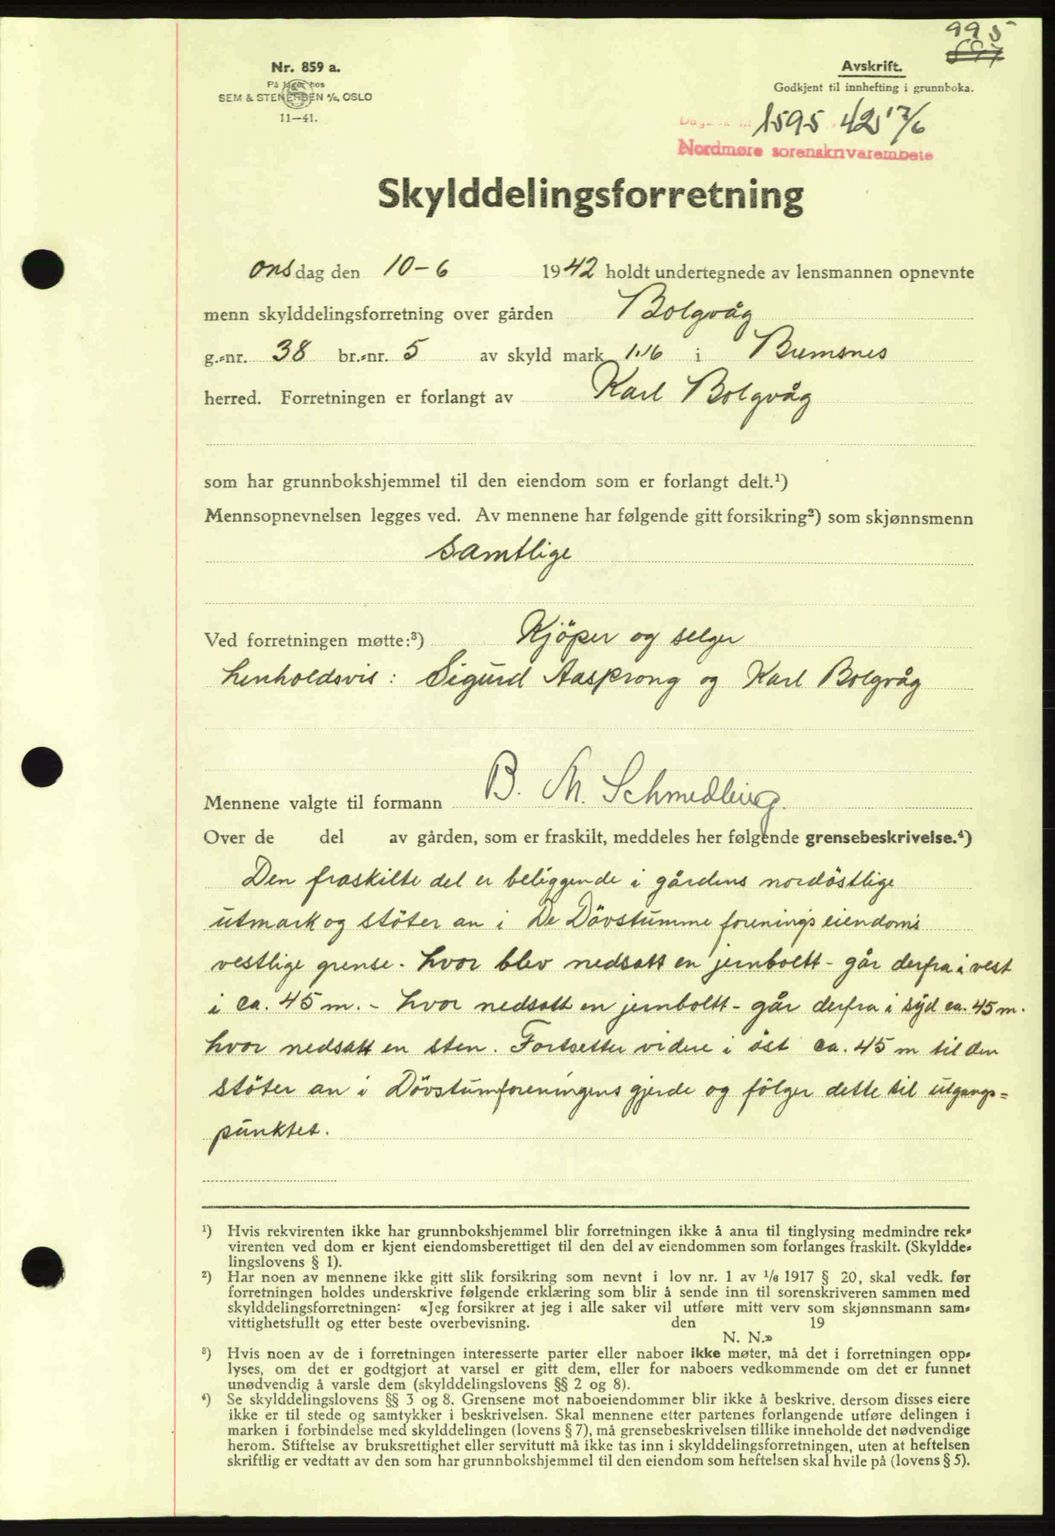 995
Nr. 859 a.
På lager hos
SEM & STENERSEN A/S, OSLO
11—41.
Avskrift.
Godkjent til innhefting i grunnboka.
1595 42 17/6
Nordmøre sorenskrivarembete
Skylddelingsforretning
onsdag den 10-6 1942 holdt undertegnede av lensmannen opnevnte
menn skylddelingsforretning over gården Bolgvåg
g.-nr. 38 br.-nr. 5 av skyld mark 1.16 i Bremsnes
herred. Forretningen er forlangt av Karl Bolgvåg
som har grunnbokshjemmel til den eiendom som er forlangt delt.¹)
Mennsopnevnelsen legges ved. Av mennene har følgende gitt forsikring²) som skjønnsmenn
samtlige
Ved forretningen møtte:³) Kjöper og selger
henholdsvis: Sigurd Aasprong og Karl Bolgvåg
Mennene valgte til formann B. M. Schmedling.
Over de del av gården, som er fraskilt, meddeles her følgende grensebeskrivelse.⁴)
Den fraskilte del er beliggende i gårdens nordöstlige
utmark og stöter an i De Dövstumme forenings eiendoms
vestlige grense. hvor blev nedsatt en jernboltt - går derfra i vest
i ca. 45 m. - hvor nedsatt en jernboltt - går derfra i syd ca. 45 m.
hvor nedsatt en sten. Fortsetter videre i öst ca. 45 m til den
stöter an i Dövstumforeningens gjerde og fölger dette til utgangs=
punktet.
¹) Hvis rekvirenten ikke har grunnbokshjemmel blir forretningen ikke å anta til tinglysing medmindre rek-
virenten ved dom er kjent eiendomsberettiget til den del av eiendommen som forlanges fraskilt. (Skyldde-
lingslovens § 1).
²) Har noen av mennene ikke gitt slik forsikring som nevnt i lov nr. 1 av 1/6 1917 § 20, skal vedk. før
forretningen holdes underskrive følgende erklæring som blir å sende inn til sorenskriveren sammen med
skylddelingsforretningen: «Jeg forsikrer at jeg i alle saker vil utføre mitt verv som skjønnsmann sam-
vittighetsfullt og etter beste overbevisning. den 19
N. N.»
³) Hvis noen av de i forretningen interesserte parter eller naboer ikke møter, må det i forretningen opp-
lyses, om det er godtgjort at varsel er gitt dem, eller for naboers vedkommende om det er funnet
unødvendig å varsle dem (skylddelingslovens §§ 2 og 8).
⁴) Se skylddelingslovens §§ 3 og 8. Grensene mot naboeiendommer blir ikke å beskrive, dersom disses eiere
ikke er til stede og samtykker i beskrivelsen. Skal mennene etter partenes forlangende utføre delingen i
marken i forbindelse med skylddelingen (lovens § 7), må grensebeskrivelsen tillike inneholde det nødvendige
herom. Stiftelse av bruksrettighet eller servitutt må ikke tas inn i skylddelingsforretningen, uten at heftelsen
skriftlig er vedtatt av den som har grunnbokshjemmel til den eiendom som heftelsen skal hvile på (lovens § 5).